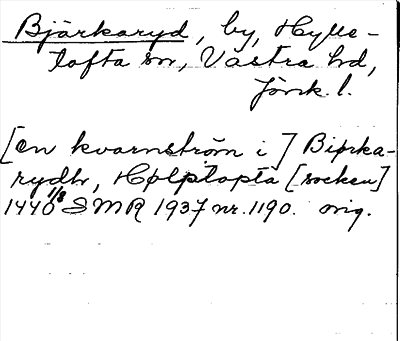 Bjärkaryd, by, Hylle-
tofta sn, Västra hd,
Jönk. l.
[en kvarnström i] Biærka-
rydh, Hølptopta [socken]
1440 1/8 SMR 1937 nr. 1190. orig.